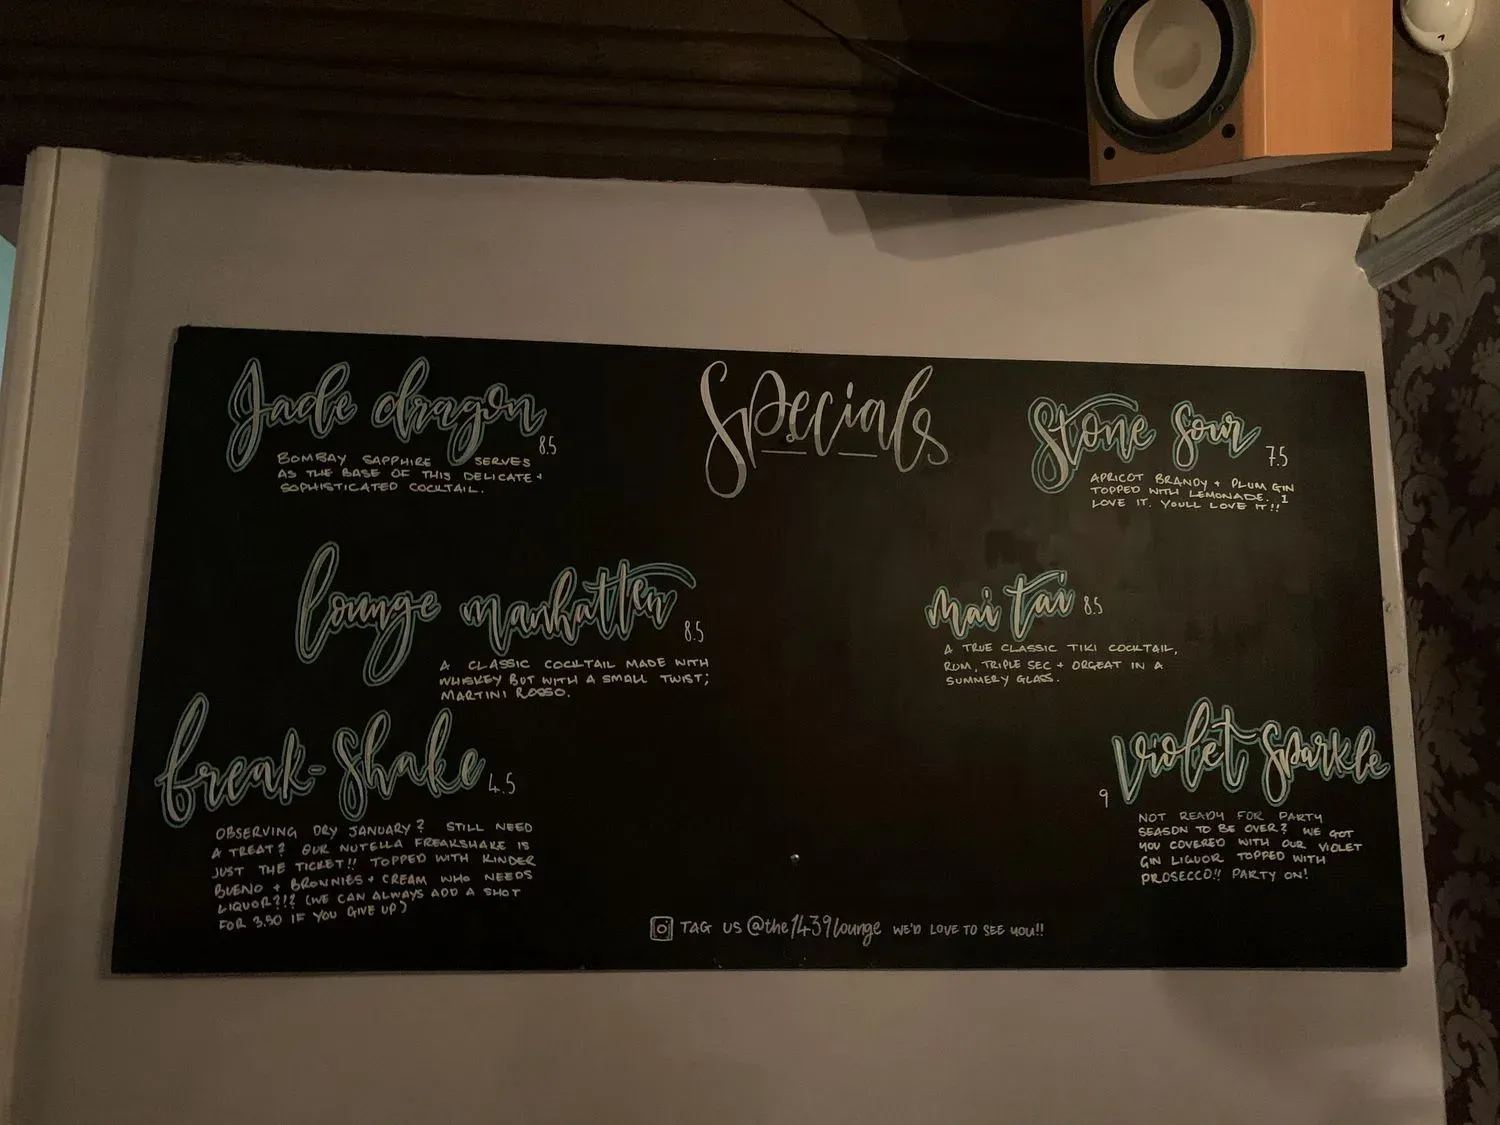 Specials
Jade dragon
8.5
BOMBAY SAPPHIRE SERVES
AS THE BASE OF THIS DELICATE +
SOPHISTICATED COCKTAIL.
Stone Sour
7.5
APRICOT BRANDY + PLUM GIN
TOPPED WITH LEMONADE. I
LOVE IT. YOULL LOVE IT!!
lounge manhatten
8.5
A CLASSIC COCKTAIL MADE WITH
WHISKEY BUT WITH A SMALL TWIST;
MARTINI ROSSO.
mai tai 8.5
A TRUE CLASSIC TIKI COCKTAIL,
RUM, TRIPLE SEC + ORGEAT IN A
SUMMERY GLASS.
freak-shake 4.5
OBSERVING DRY JANUARY? STILL NEED
A TREAT? OUR NUTELLA FREAKSHAKE IS
JUST THE TICKET!! TOPPED WITH KINDER
BUENO + BROWNIES + CREAM WHO NEEDS
LIQUOR?!? (WE CAN ALWAYS ADD A SHOT
FOR 3.50 IF YOU GIVE UP)
Violet Sparkle
9
NOT READY FOR PARTY
SEASON TO BE OVER? WE GOT
YOU COVERED WITH OUR VIOLET
GIN LIQUOR TOPPED WITH
PROSECCO!! PARTY ON!
TAG US @the1439lounge WE'D LOVE TO SEE YOU!!